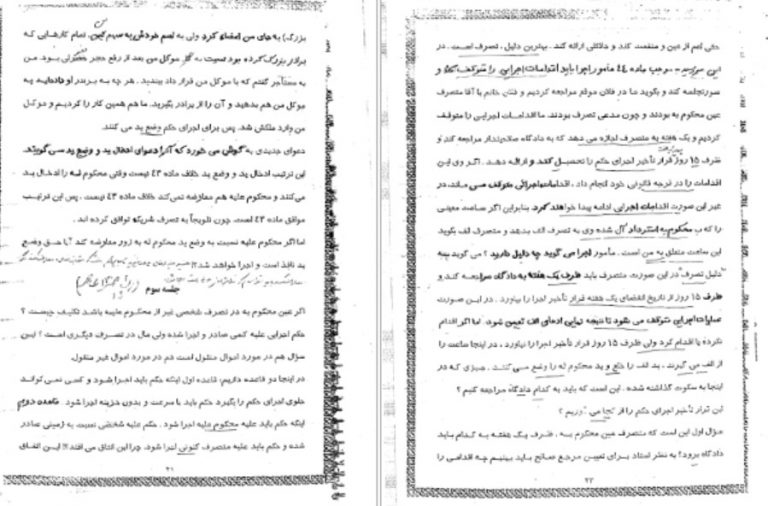 بزرگ) به جای من امضاء کرد ولی به اسم خودش به سهم من. تمام کارهایی که
برادر بزرگ کرده بود نسبت به کار موکل من بعد از رفع حجر بود. من
به مستأجر گفتم که با موکل من قرار داد ببندید. هر چه به برادر او داده‌اید به
موکل من هم بدهید و آن را از برادر بگیرید. ما هم همین کار را کردیم و موکل
من وارد ملکش شد. پس برای اجرای حکم وضع ید می کنند.
دعوای جدیدی به گوش می خورد که آنرا دعوای ادخال ید و وضع ید می گویند.
این ترتیب ادخال ید و وضع ید خلاف ماده ۴۳ نیست وقتی محکوم له را ادخال ید
می‌کنند و محکوم علیه هم معاوضه نمی‌کند خلاف ماده ۴۳ نیست. پس این ترتیب
موافق ماده ۴۳ است. چون تلویحاً به تصرف شریکه توافق کرده اند.
اما اگر محکوم علیه نسبت به وضع ید محکوم له به زور معاوضه کند آیا حق وضع
ید نافذ است و اجرا خواهد شد؟!
جلسه سوم
اگر عین محکوم به در تصرف شخصی غیر از محکوم علیه باشد تکلیف چیست؟
حکم اجرایی علیه کسی صادر و اجرا شده ولی مال در تصرف دیگری است؟ این
سؤال هم در مورد اموال منقول است هم در مورد اموال غیر منقول.
در اینجا دو قاعده داریم: قاعده اول اینکه حکم باید اجرا شود و کسی نمی تواند
جلوی اجرای حکم را بگیرد حکم باید با سرعت و بدون هزینه اجرا شود. قاعده دوم
اینکه حکم باید علیه محکوم علیه اجرا شود. حکم علیه شخصی نسبت به زمینی صادر
شده و حکم باید علیه متصرف کنونی اجرا شود. چرا این اتفاق می افتد؟! این اتفاق
۲۱
حقی اعم از عین و منفعت کند و دلائلی ارائه کند. بهترین دلیل، تصرف است. در
این موجب ماده ۴۴ مأمور اجرا باید اقدامات اجرایی را متوقف کند و
صورتجلسه کند و بگوید ما در فلان موقع مراجعه کردیم و فلان خانم یا آقا متصرف
عین محکوم به بودند و چون مدعی تصرف بودند، ما اقدامات اجرایی را متوقف
کردیم و یک هفته به متصرف اجازه می دهد که به دادگاه صلاحیتدار مراجعه کند و
ظرف ۱۵ روز قرار تأخیر اجرای حکم را تحصیل کند و ارائه دهد. اگر وی این
اقدامات را در فرجه قانونی خود انجام داد، اقدامات اجرائی متوقف می ماند، در
غیر این صورت اقدامات اجرایی ادامه پیدا خواهد کرد. بنابراین اگر ساعت معینی
را که ب محکوم به استرداد آن شده وی به تصرف الف بدهد و متصرف الف بگوید
این ساعت متعلق به من است. مأمور اجرا می گوید چه دلیل دارید؟ می گوید به
"دلیل تصرف" در این صورت متصرف باید ظرف یک هفته به دادگاه مراجعه کند و
ظرف ۱۵ روز از تاریخ انقضای یک هفته قرار تأخیر اجرا را بیاورد. در این صورت
عملیات اجرایی متوقف می شود تا نتیجه نهایی ادعای الف تعیین شود. اما اگر اقدام
نکرد یا اقدام کرد ولی ظرف ۱۵ روز قرار تأخیر اجرا را نیاورد، در اینجا ساعت را
از الف می گیرند. ید الف را خلع و ید محکوم له را وضع می کنند. چیزی که در
اینجا به سکوت گذاشته شده، این است که باید به کدام دادگاه مراجعه کنیم؟
این قرار تأخیر اجرای حکم را از کجا می آوریم؟
سؤال اول این است که متصرف عین محکوم به، ظرف یک هفته به کدام باید
دادگاه برود؟ به نظر استاد برای تعیین مرجع صالح باید ببینیم چه اقدامی را
۲۲